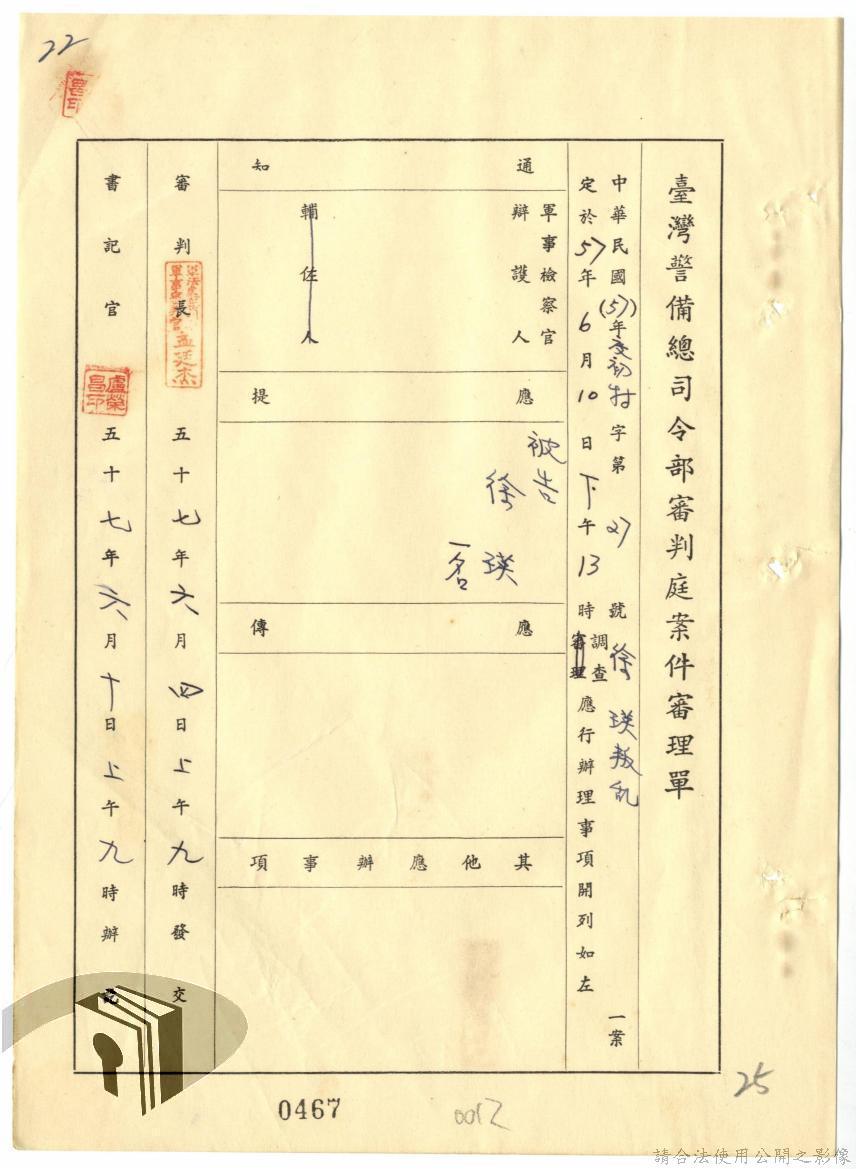 22
臺灣警備總司令部審判庭案件審理單
中華民國(57)年度初特字第27號徐瑛叛乱一案
定於57年6月10日下午13時調查審理應行辦理事項開列如左
通知
軍事檢察官
辯護人
輔佐人
應提
被告
徐瑛
一名
應傳
其他應辦事項
審判長 五十七年六月四日上午九時發交
書記官 盧榮昌印 五十七年六月十日上午九時辦
25
0467
0012
請合法使用公開之影像